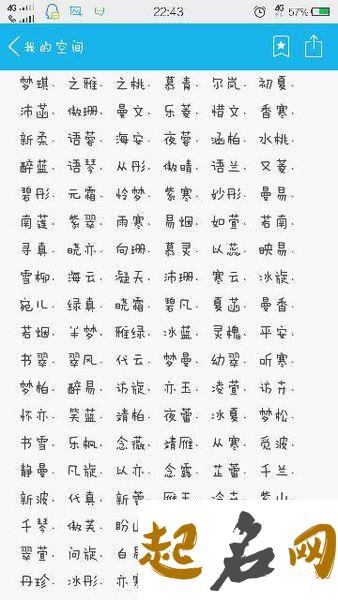 4G 4G 22:43 4G 57%
我的空间
梦琪. 之雅. 之桃. 慕青. 尔岚. 初夏.
沛菡. 傲珊. 曼文. 乐菱. 惜文. 香寒.
新柔. 语蓉. 海安. 夜蓉. 涵柏. 水桃.
醉蓝. 语琴. 从彤. 傲晴. 语兰. 又菱.
碧彤. 元霜. 怜梦. 紫寒. 妙彤. 曼易.
南莲. 紫翠. 雨寒. 易烟. 如萱. 若南.
寻真. 晓亦. 向珊. 慕灵. 以蕊. 映易.
雪柳. 海云. 凝天. 沛珊. 寒云. 冰旋.
宛儿. 绿真. 晓霜. 碧凡. 夏菡. 曼香.
若烟. 半梦. 雅绿. 冰蓝. 灵槐. 平安.
书翠. 翠风. 代云. 梦曼. 幼翠. 听寒.
梦柏. 醉易. 访旋. 亦玉. 凌萱. 访卉.
怀亦. 笑蓝. 靖柏. 夜蕾. 冰夏. 梦松.
书雪. 乐枫. 念薇. 靖雁. 从寒. 觅波.
静曼. 凡旋. 以亦. 念露. 芷蕾. 千兰.
新波. 代真. 新蕾. 雁玉. 冷卉. 紫山.
千琴. 傲芙. 盼山
翠萱. 问旋. 白易
丹珍. 冰彤. 亦寒
起名网